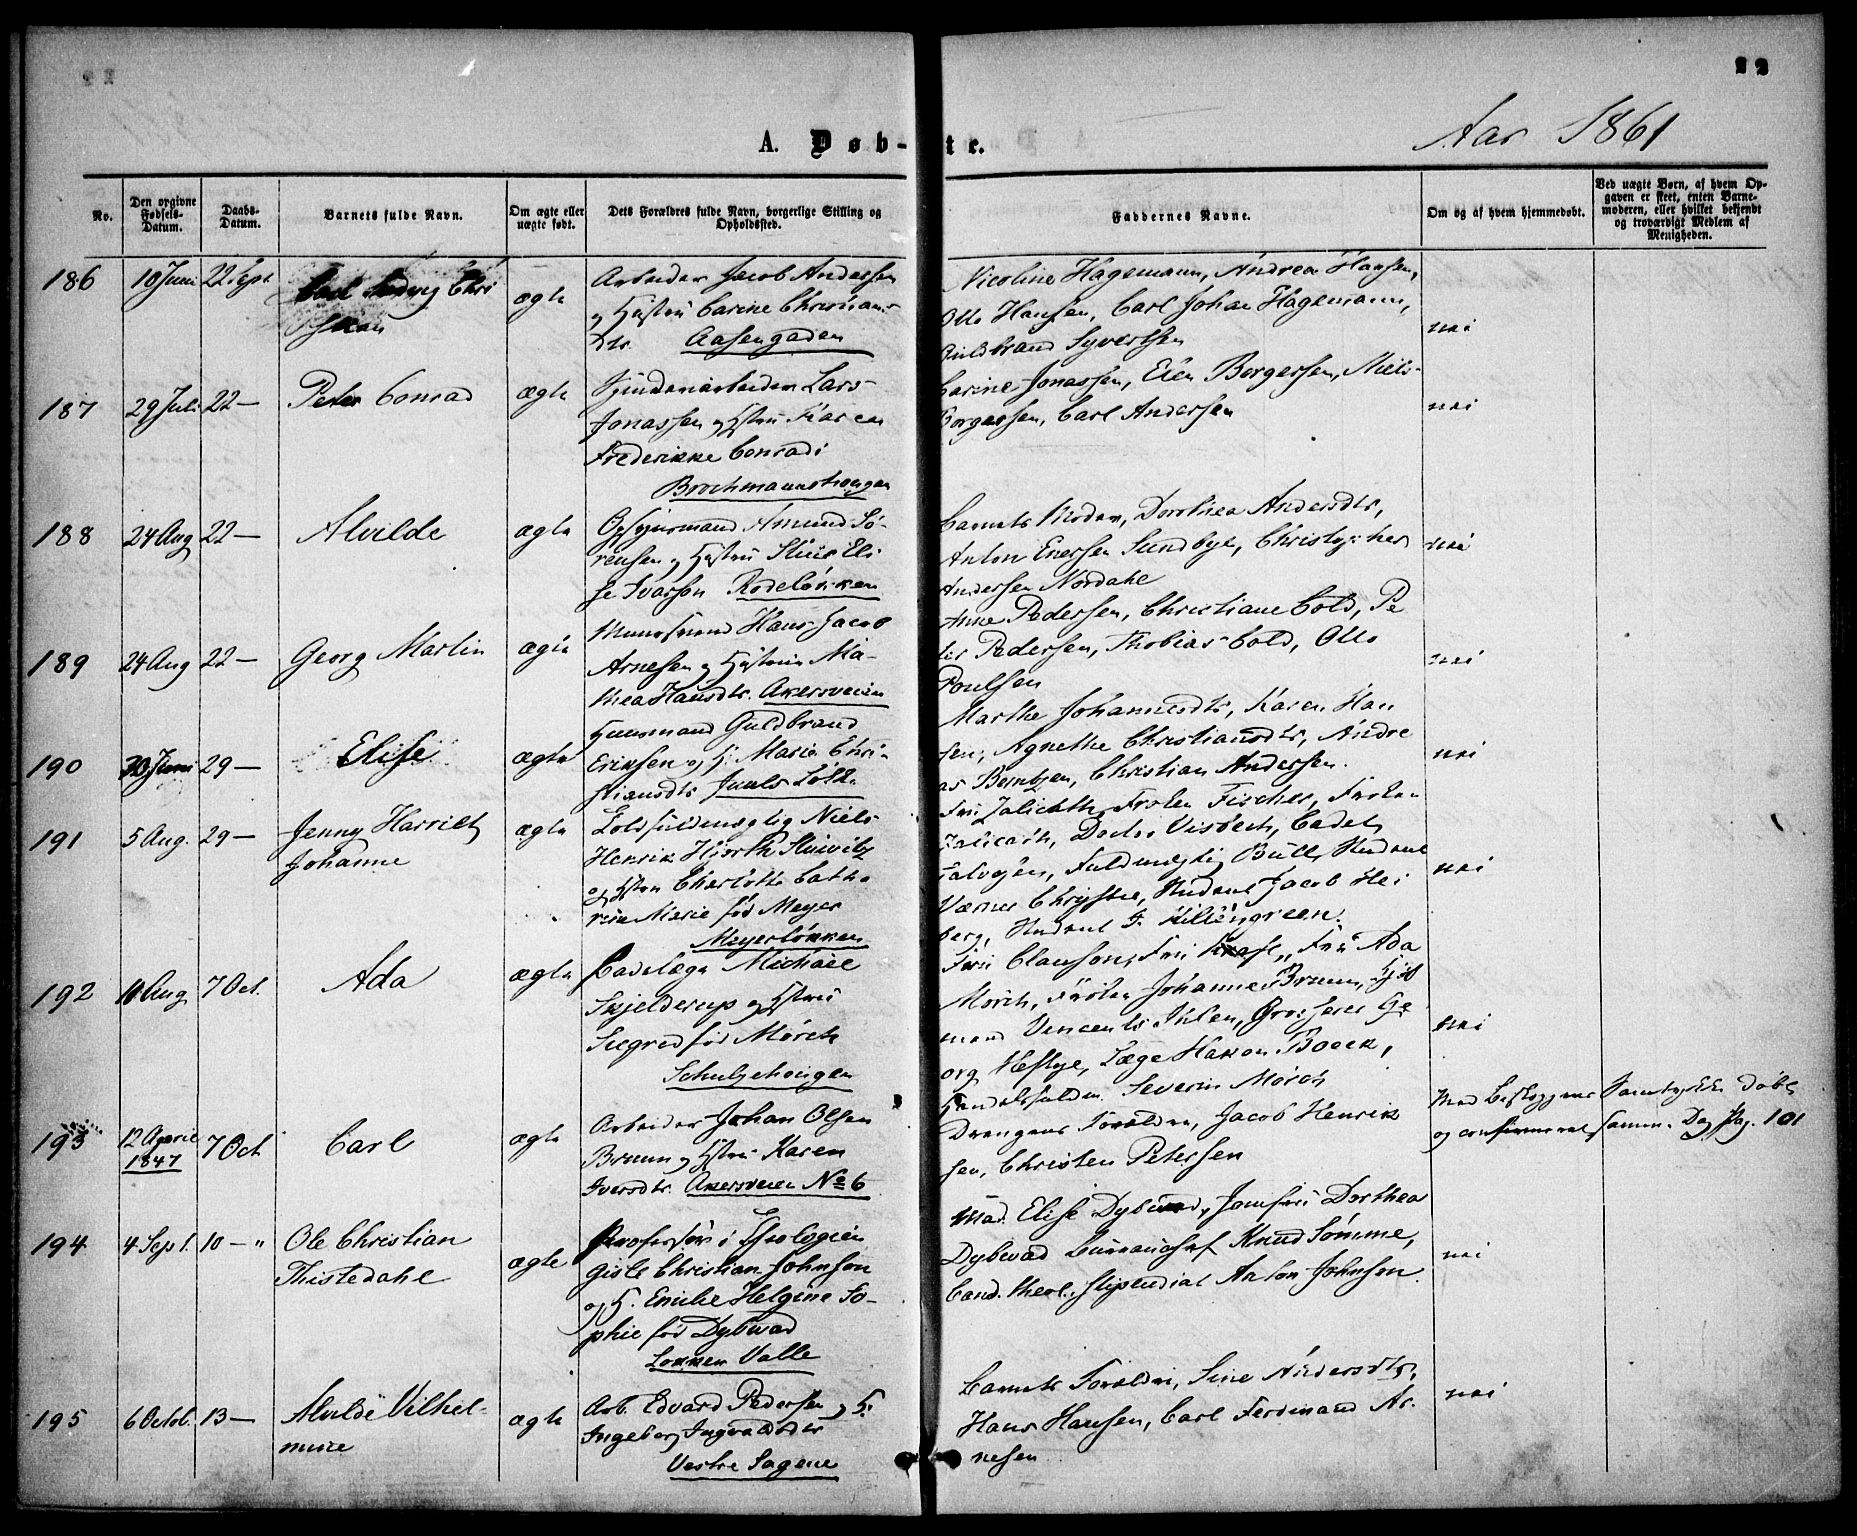 22
A. Døb-
te.
Aar 1861
No.
Den opgivne Fødsels-Datum.
Daabs-Datum.
Barnets fulde Navn.
Om ægte eller uægte født.
Dets Forældres fulde Navn, borgerlige Stilling og Opholdssted.
Faddernes Navne.
Om og af hvem hjemmedøbt.
Ved uægte Børn, af hvem Op-
gaven er skeet, enten Barne-
moderen, eller hvilket bekjendt
og troværdigt Medlem af
Menigheden.
186 10 Juni 22 Sept Carl Ludvig Chri
stian
ægte
Arbeider Jacob Andersen
og Hustru Carine Christians-
dtr. Aasengaden
Nicoline Hagemann, Andrea Hansen,
Otto Hansen, Carl Johan Hagemann,
Guldbrand Syvertsen
nei
187 29 Juli 22 — Peter Conrad
ægte
Spinderiarbeider Lars
Jonassen og Hstru Karen
Frederikke Conradi
Brochmannshougen
Carine Jonassen, Elen Borgersen, Niels
Borgersen, Carl Andersen
nei
188 24 Aug 22 — Alvilde
ægte
Amund Sö-
rensen og Hustru Eli
se Ivarson Rodelökken
Barnets Moder, Dorothea Andersdtr,
Anton Enersen Sundbye, Christopher
Andersen Nordahl
nei
189 24 Aug 22 — Georg Martin
ægte
Muursvend Hans Jacob
Arnesen og Hustru Ma-
thea Hansdtr. Akersveien
Anne Pedersen, Christiane Cold, Pe
ter Pedersen, Thobias Cold, Otto
Poulsen
nei
190 30 Juni 29 — Elise
ægte
Huusmand Guldbrand
Eriksen og H. Marie Chri-
stiansdtr Juuls Lökke
Marthe Johannesdtr, Karen Han
sen, Agnethe Christiansdtr, Andre
as Berntzen, Christian Andersen.
nei
191 5 Aug. 29 — Jenny Harriet
Johanne
ægte
Toldfuldmægtig Niels
Henrik Hjorth
og Hstru Charlotte Catha
rine Marie fød Meyer
Meyerlökken
Fru Fröken Fischer, Fröken
Doctor Visbech, Cadet
Fuldmægtig Bull, Student
Werner Student Jacob Hei
berg, Student F. Lilliengreen.
nei
192 11 Aug 7 Oct. Ada
ægte
Badelæge Michael
Skjelderup og Hstru
Sigrid fød Mörch
Schultzehougen
Fru Clauson, Fru Kraft, Fru Ada
Mörch, Fröken Johanne Bruun,
mand Vincents Ihlen, Grosserer Ge
org Heftye, Læge Hakon Boeck,
Handelsfuldm. Severin Mörch
nei
193 12 April
1847
7 Oct Carl
ægte
Arbeider Johan Olsen
Bruun og Hstru Karen
Iversdtr. Akersveien No 6
Drengens Forældre, Jacob Henrik
sen, Christen Petersen
Med Biskoppens Samtykke döbt
og confirmeret samme Dag, Pag. 101
194 4 Sept. 10 — " Ole Christian
Thistedahl
ægte
Professor i Theologien
Gisle Christian Johnson
og H. Emilie Helgine So-
phie fød Dybwad
Lökken Valle
Mad. Elise Dybwad, Jomfru Dorthea
Dybwad Bureauchef Knud Sömme,
Cand. theol. Stipendiat Anton Johnson.
nei
195 6 Octob. 13 — Alvilde Vilhel-
mine
ægte
Arb. Edvard Pedersen og H.
Ingeborg Ingvaldsdtr
Vestre Sagene
Barnets Forældre, Sine Andersdtr,
Hans Hansen, Carl Ferdinand Ar-
nesen
nei